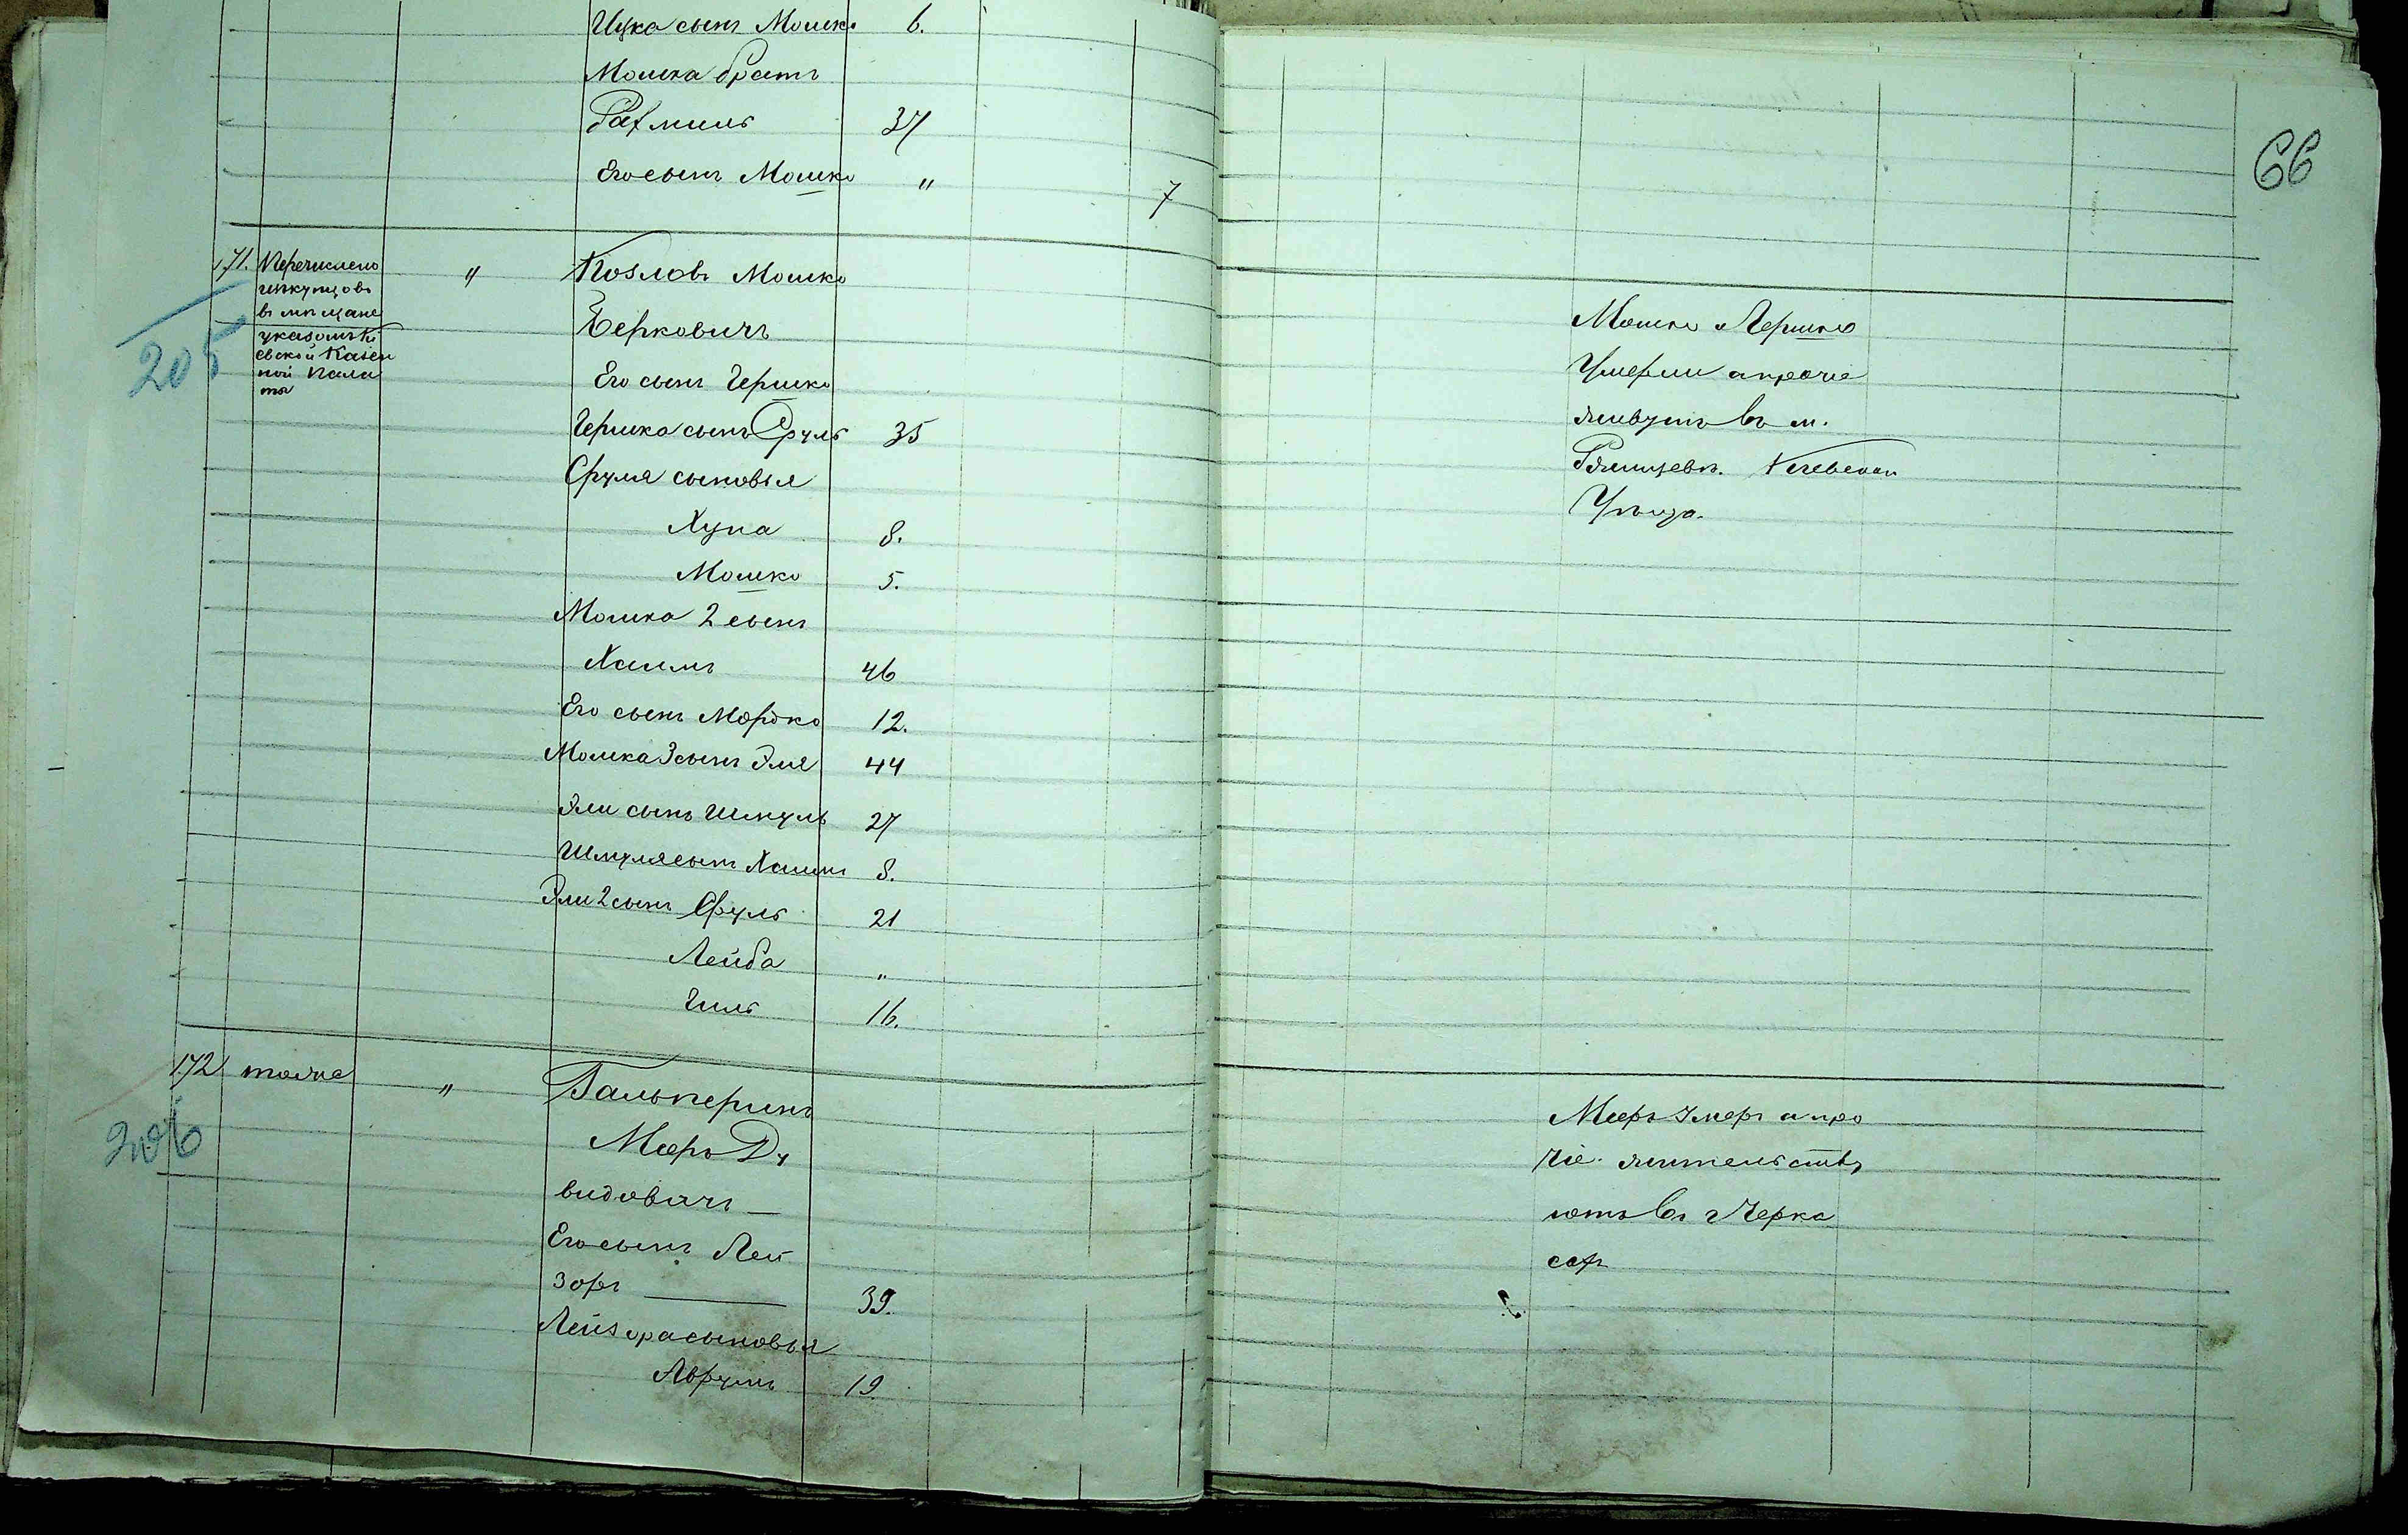 Ицка сынъ Мошко 6.
Мошка братъ
Рахмиль 37
Его сынъ Мошко "
7
66
171. Перечислено " Козловъ Мошко
изъ купцовъ
въ мѣщане Берковичъ
указомъ Кі
евской Казен
ной Пала
ты
205
Его сынъ Гершко
Гершка сынъ Сруль 35
Сруля сыновья
Хуна 8.
Мошко 5.
Мошка 2 сынъ
Хаимъ 46
Его сынъ Мордко 12.
Мошка 3 сынъ Эля 44
Эли сынъ Шмуль 27
Шмуля сынъ Хаимъ 8.
Эли 2 сынъ Сруль 21
Лейба "
Гиль 16.
Мошко Гершко
Умерли а прочіе
живутъ въ м.
Ржищевѣ. Кіевскаго
Уѣзда.
172 тоже " Гальперинъ
206
Мееръ Ду
видовичъ
Его сынъ Лей
зоръ 39.
Лейзора сыновья
Аврумъ 19
Мееръ умеръ а про
чіе жительству
ютъ въ г Черка
сахъ